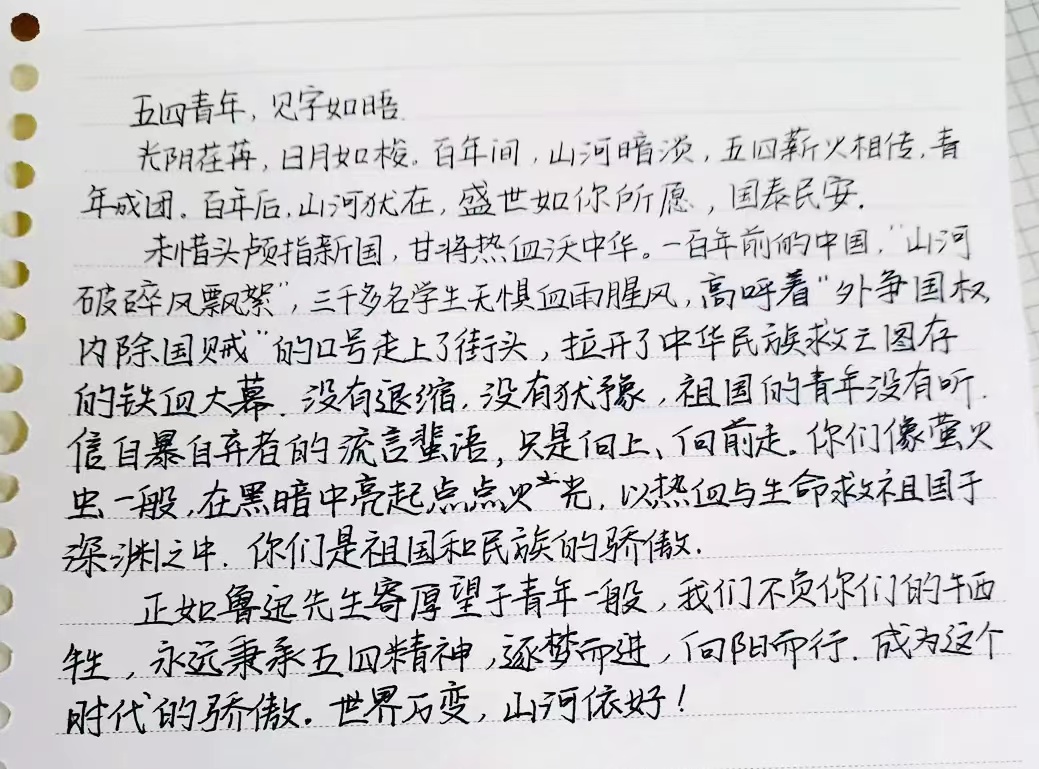 五四青年，见字如晤.
光阴荏苒，日月如梭。百年间，山河暗淡，五四薪火相传，青
年成团。百年后，山河犹在，盛世如你所愿，国泰民安.
未惜头颅指新国，甘将热血沃中华。一百年前的中国，“山河
破碎风飘絮”，三千多名学生无惧血雨腥风，高呼着“外争国权
内除国贼”的口号走上了街头，拉开了中华民族救亡图存
的铁血大幕.没有退缩，没有犹豫，祖国的青年没有听
信自暴自弃者的流言蜚语，只是向上、向前走。你们像萤火
虫一般，在黑暗中亮起点点火光，以热血与生命救祖国于
深渊之中.你们是祖国和民族的骄傲.
正如鲁迅先生寄厚望于青年一般，我们不负你们的牺
牲，永远秉承五四精神，逐梦而进，向阳而行.成为这个
时代的骄傲。世界万变，山河依好！